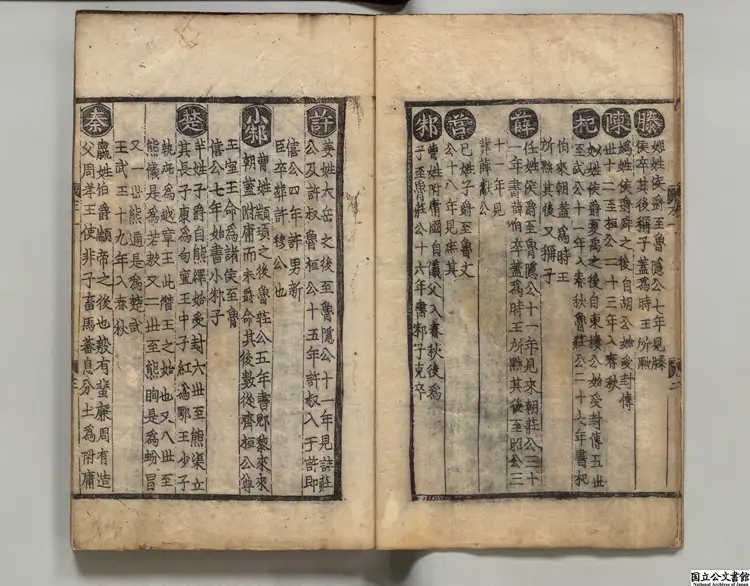 滕
姬姓侯爵至魯隱公七年見滕
侯卒其後稱子蓋爲時王所黜
陳
嬀姓侯爵舜之後自胡公始受封傳
世十二至桓公二十三年入春秋
杞
姒姓侯爵夏禹之後自東樓公始受封傳五世
至武公十一年入春秋魯莊公二十七年書杞
伯來朝蓋爲時王
所黜其後又稱子
薛
任姓侯爵至魯隱公十一年見來朝莊公三十
一年書薛伯卒蓋爲時王所黜其後至昭公三
十一年見
葬薛獻公
莒
已姓子爵至魯文
公十八年見庶其
邾
曹姓附庸國自儀父入春秋後爲
子至魯莊公十六年書邾子克卒
許
姜姓大岳之後至魯隱公十一年見許莊
公及許叔魯桓公十五年許叔入于許即
僖公四年許男新
臣卒葬許穆公也
小邾
曹姓顓頊之後魯莊公五年書郳黎來來
朝蓋附庸而未爵命其後數從齊桓公尊
王室王命爲諸侯至魯
僖公七年始書小邾子
楚
羋姓子爵自熊繹始受封六世至熊渠立
其長子康爲句亶王中子紅爲鄂王少子
執疵爲越章王此僭王之始也又八世至
熊儀是爲若敖又二世至熊眴是爲蚡冒
又一世熊通是爲楚武
王武王十九年入春秋
秦
嬴姓伯爵顓帝之後也殷有蜚廉周有造
父周孝王使非子畜馬蕃息分土爲附庸
国立公文書館
National Archives of Japan